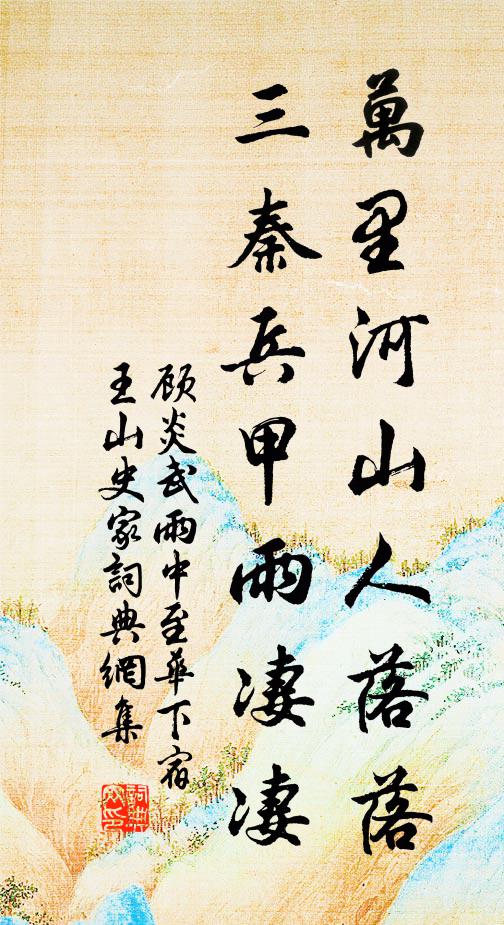 萬里河山人落落
三秦兵甲雨淒淒
顾炎武雨中至華下宿
王山史家詞典網集